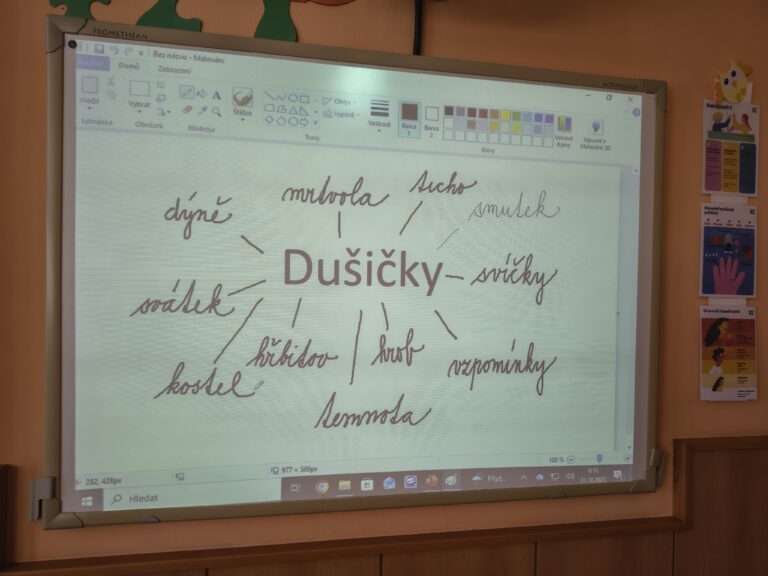 PROMETHEAN
ACTIVBOARD
Bez názvu - Malování
Soubor Domů Zobrazení
Vložit
Vybrat
Štětce
Obrys
Výplň
Velikost
Barva 1
Barva 2
Upravit barvy
Upravit v Malování 3D
Schránka
Obrázek
Nástroje
Tvary
Barvy
dýně
mrtvola
ticho
smutek
Dušičky
svíčky
svátek
hřbitov
hrob
vzpomínky
kostel
temnota
100 %
282, 428px
977 × 569px
Hledat
Přijd...
9:10
31.10.2025
Respekt